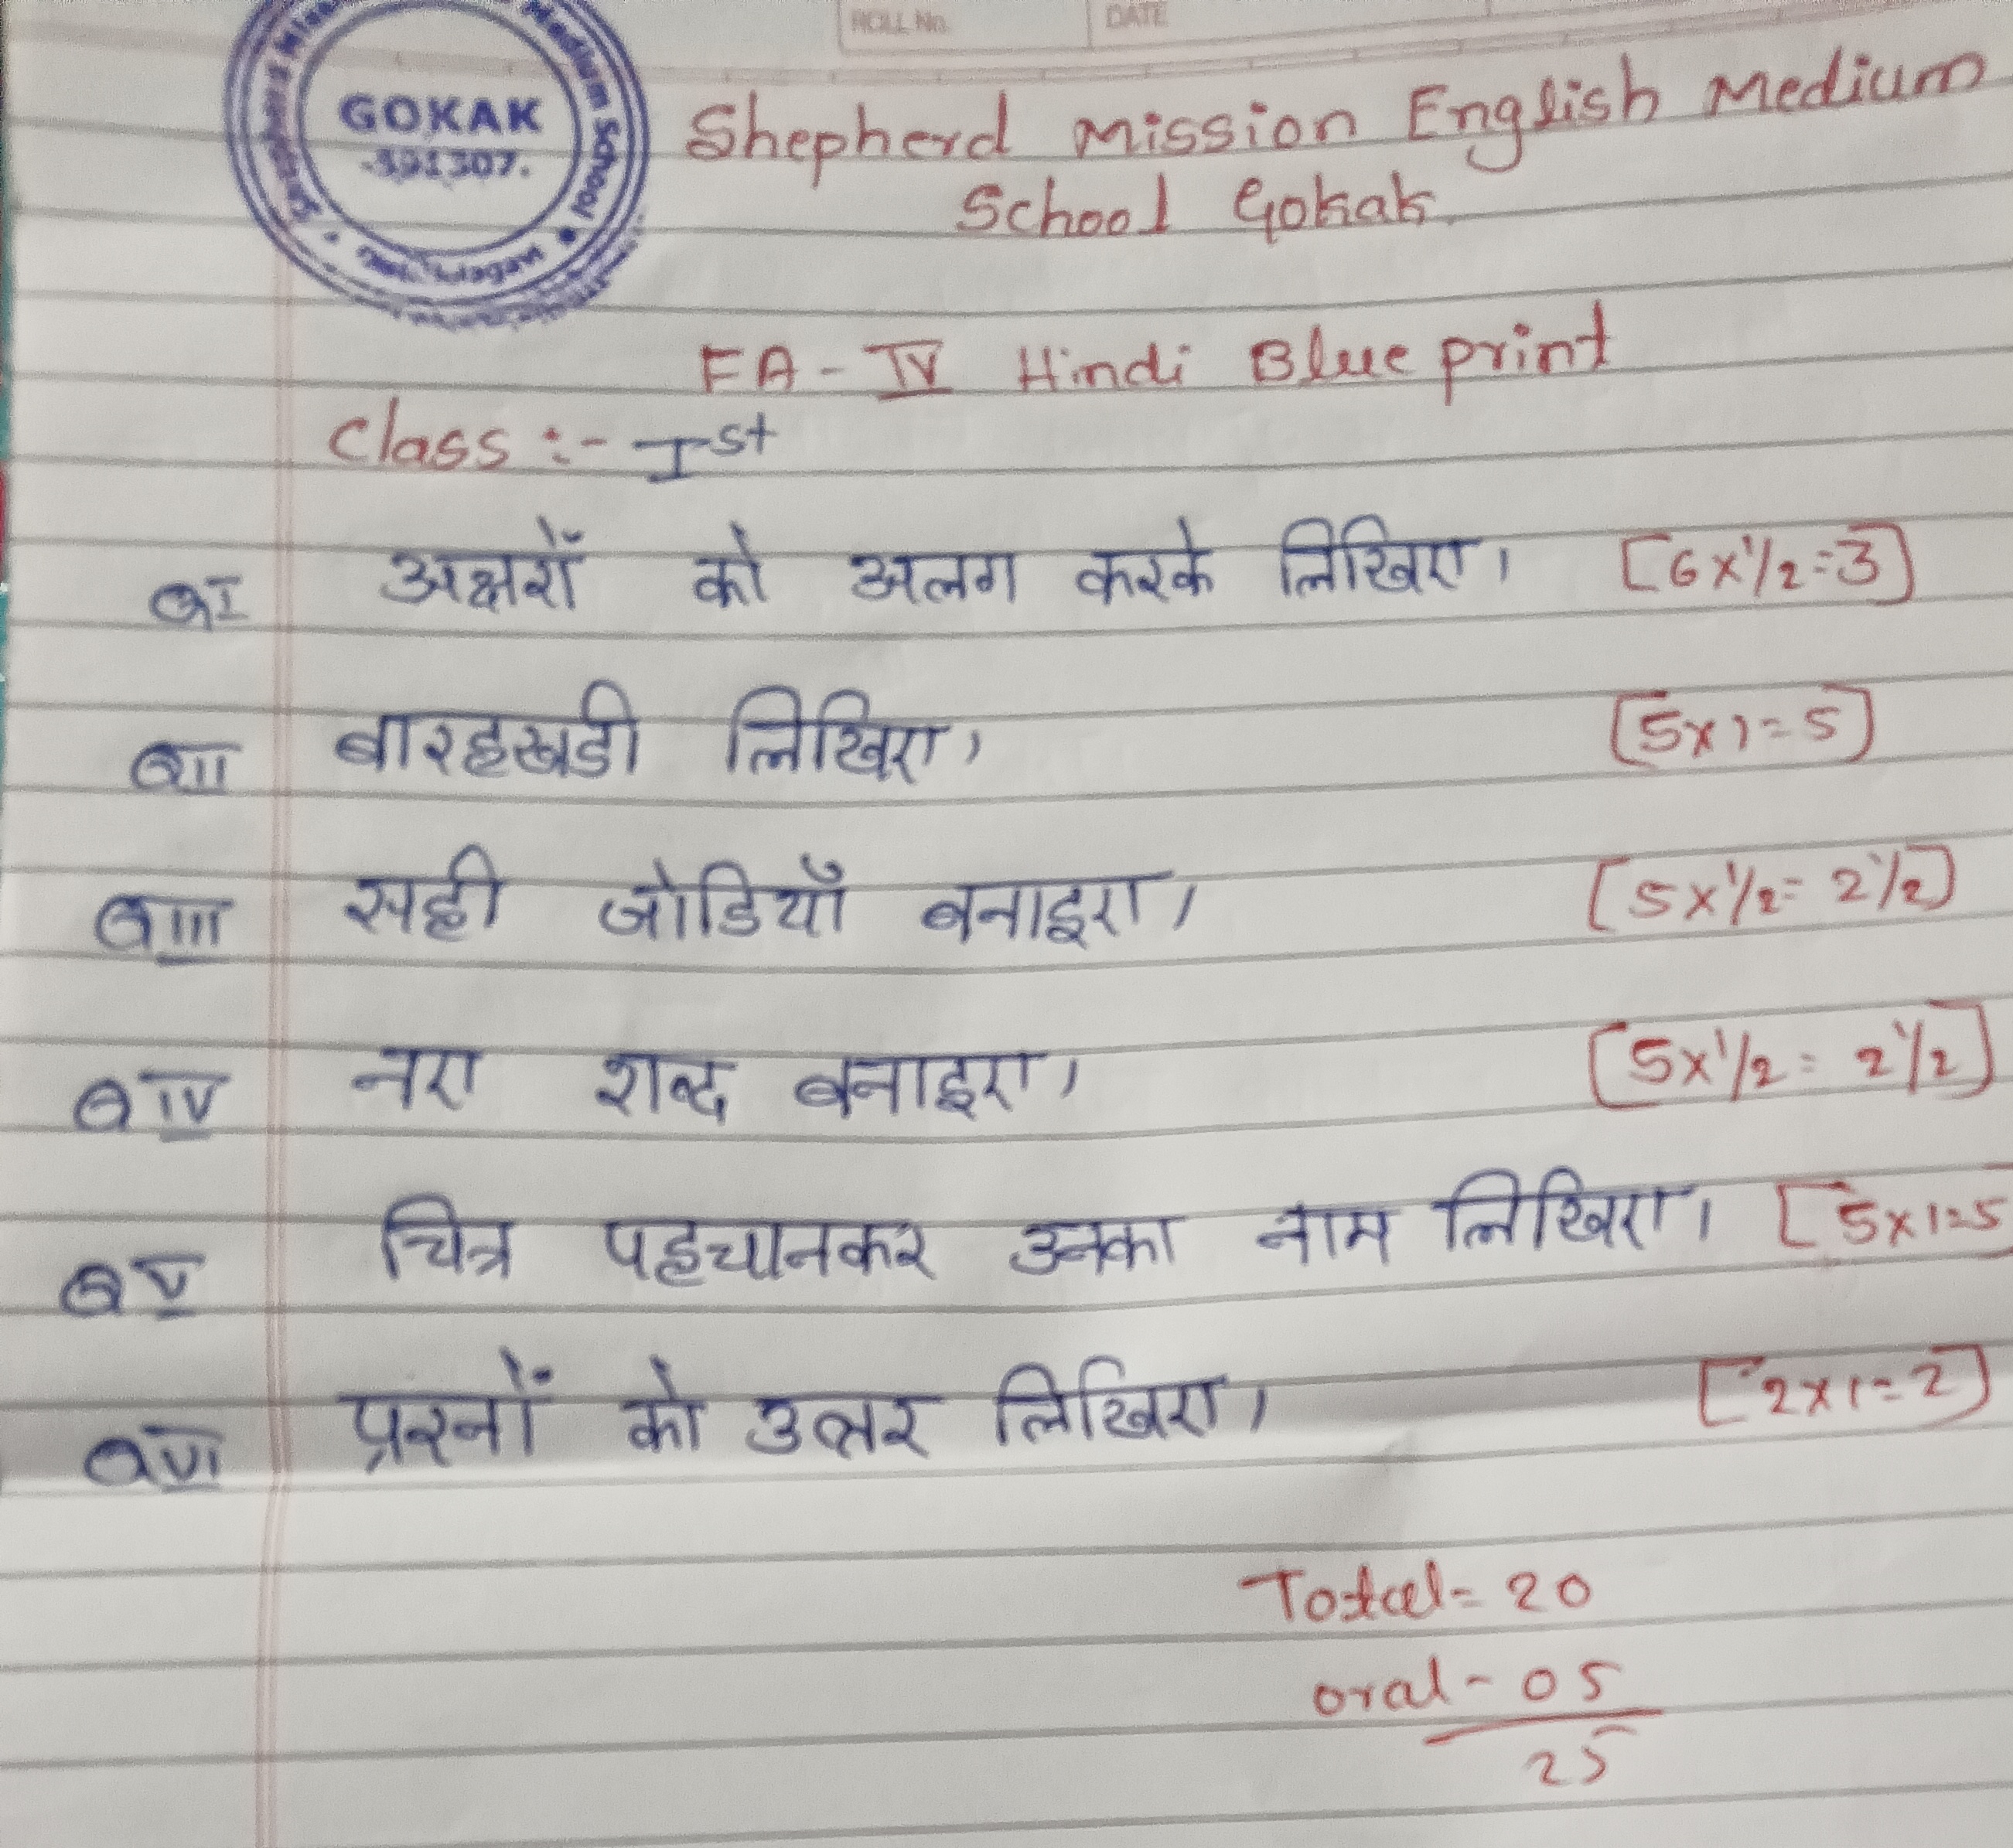 ROLL No. DATE
Medium School
GOKAK
-591307.
Shepherd Mission English Medium
School Gokak.
FA - IV Hindi Blue print
Class :- Ist
QI अक्षरों को अलग करके लिखिए। [6x1/2=3]
QII बारहखडी लिखिए। [5x1=5]
QIII सही जोडियाँ बनाइए। [5x1/2= 2 1/2]
QIV नए शब्द बनाइए। [5x1/2= 2 1/2]
QV चित्र पहचानकर उनका नाम लिखिए। [5x1=5
QVI प्रश्नों को उत्तर लिखिए। [2x1=2]
Total= 20
oral- 05
25